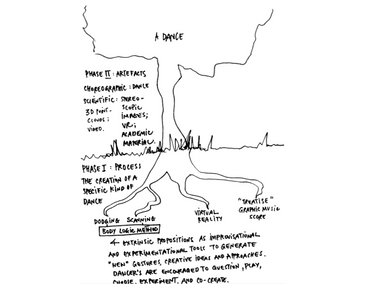 A DANCE
PHASE II: ARTEFACTS
CHOREOGRAPHIC: DANCE
SCIENTIFIC: STEREO-
3D POINT- SCOPIC
CLOUDS; IMAGES;
VIDEO. VR;
ACADEMIC
MATERIAL.
PHASE I: PROCESS
THE CREATION OF A
SPECIFIC KIND OF
DANCE
DODGING SCANNING
BODY LOGIC METHOD
VIRTUAL
REALITY
"SPEATISE"
GRAPHIC MUSIC
SCORE
← EXTRINSIC PROPOSITIONS AS IMPROVISATIONAL
AND EXPERIMENTATIONAL TOOLS TO GENERATE
"NEW" GESTURES, CREATIVE IDEAS AND APPROACHES.
DANCER'S ARE ENCOURAGED TO QUESTION, PLAY,
CHOOSE, EXPERIMENT, AND CO-CREATE.